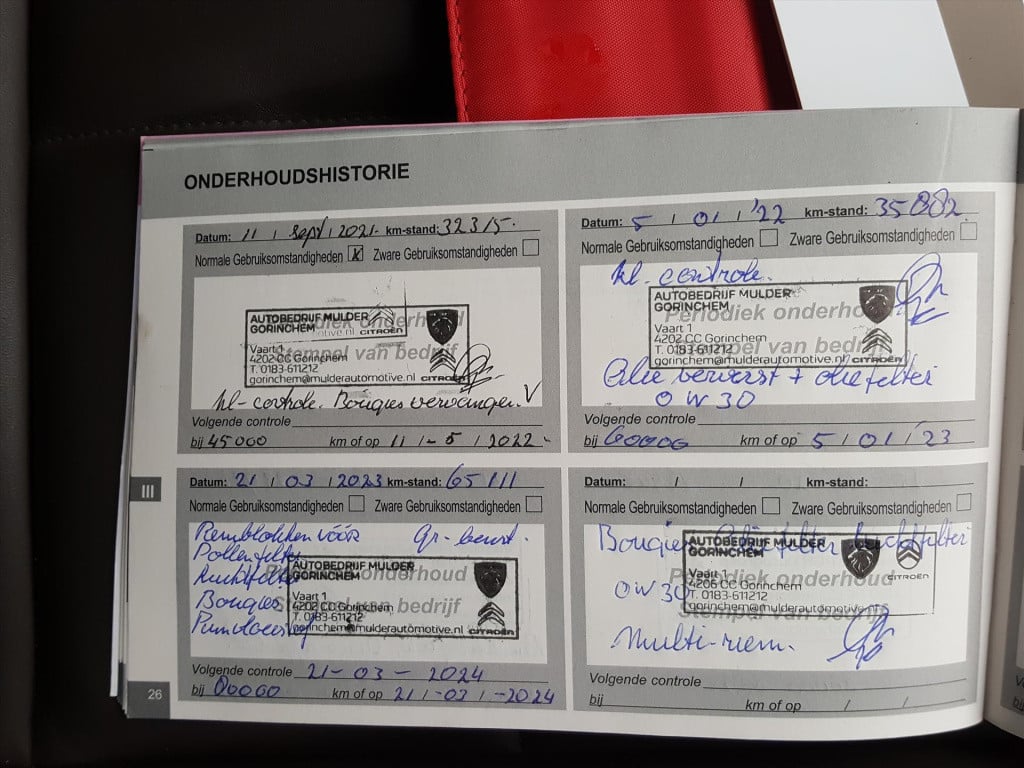 ONDERHOUDSHISTORIE
Datum: 11 / sept / 2021- km-stand: 32315.
Normale Gebruiksomstandigheden X Zware Gebruiksomstandigheden
Periodiek onderhoud
Stempel van bedrijf
AUTOBEDRIJF MULDER
GORINCHEM
Vaart 1
4202 CC Gorinchem
T. 0183-611212
gorinchem@mulderautomotive.nl CITROËN
kl-controle. Bougies vervangen. V
Volgende controle
bij 45000 km of op 11 / -5 / 2022-
Datum: 5 / 01 / '22 km-stand: 35882
Normale Gebruiksomstandigheden Zware Gebruiksomstandigheden
kl-controle.
Periodiek onderhoud
Stempel van bedrijf
AUTOBEDRIJF MULDER
GORINCHEM
Vaart 1
4202 CC Gorinchem
T. 0183-611212
gorinchem@mulderautomotive.nl CITROËN
Olie ververst + oliefilter
0 W 30
Volgende controle
bij 60000 km of op 5 / 01 / '23
III
Datum: 21 / 03 / 2023 km-stand: 65111
Normale Gebruiksomstandigheden Zware Gebruiksomstandigheden
Remblokken vóór Gr-beurt.
Pollenfilter
Luchtfilter
Bougies
Periodiek onderhoud
Stempel van bedrijf
AUTOBEDRIJF MULDER
GORINCHEM
Vaart 1
4202 CC Gorinchem
T. 0183-611212
gorinchem@mulderautomotive.nl CITROËN
Volgende controle 21-03-2024
bij 00000 km of op 21 / -03 / -2024
Datum: / / km-stand:
Normale Gebruiksomstandigheden Zware Gebruiksomstandigheden
Bougies Oliefilter Luchtfilter
0W30
Periodiek onderhoud
Stempel van bedrijf
AUTOBEDRIJF MULDER
GORINCHEM
Vaart 1
4206 CC Gorinchem
T. 0183-611212
gorinchem@mulderautomotive.nl
CITROËN
Multi-riem.
Volgende controle
bij km of op / /
26